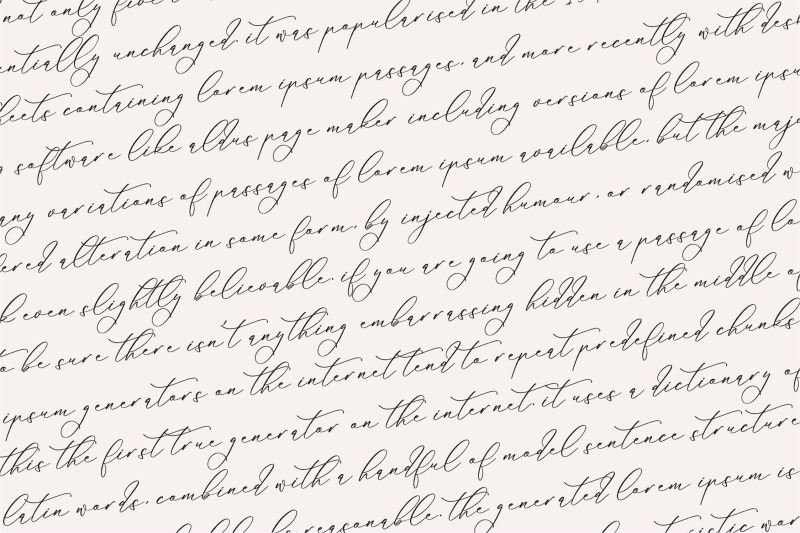 not only five
entially unchanged. it was popularised in the
heets containing lorem ipsum passages. and more recently with des
software like aldus page maker including versions of lorem ipsu
any variations of passages of lorem ipsum available. but the maj
ered alteration in some form. by injected humour. or randomised w
k even slightly believable. if you are going to use a passage of lo
o be sure there isn't anything embarrassing hidden in the middle of
ipsum generators on the internet tend to repeat predefined chunks
this the first true generator on the internet. it uses a dictionary of
latin words. combined with a handful of model sentence structure
reasonable. the generated lorem ipsum is